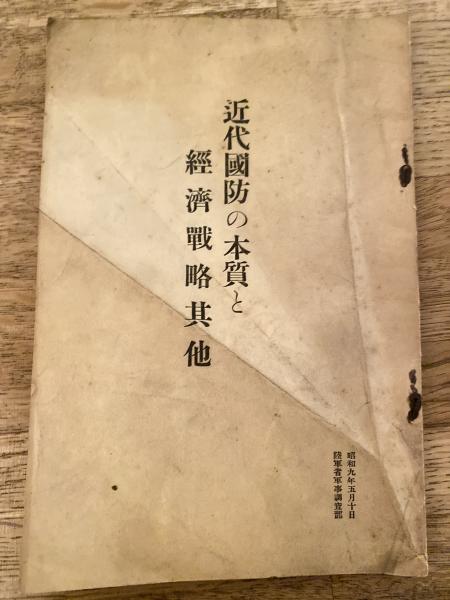 近代國防の本質と
經濟戰略其他
昭和九年五月十日
陸軍省軍事調査部